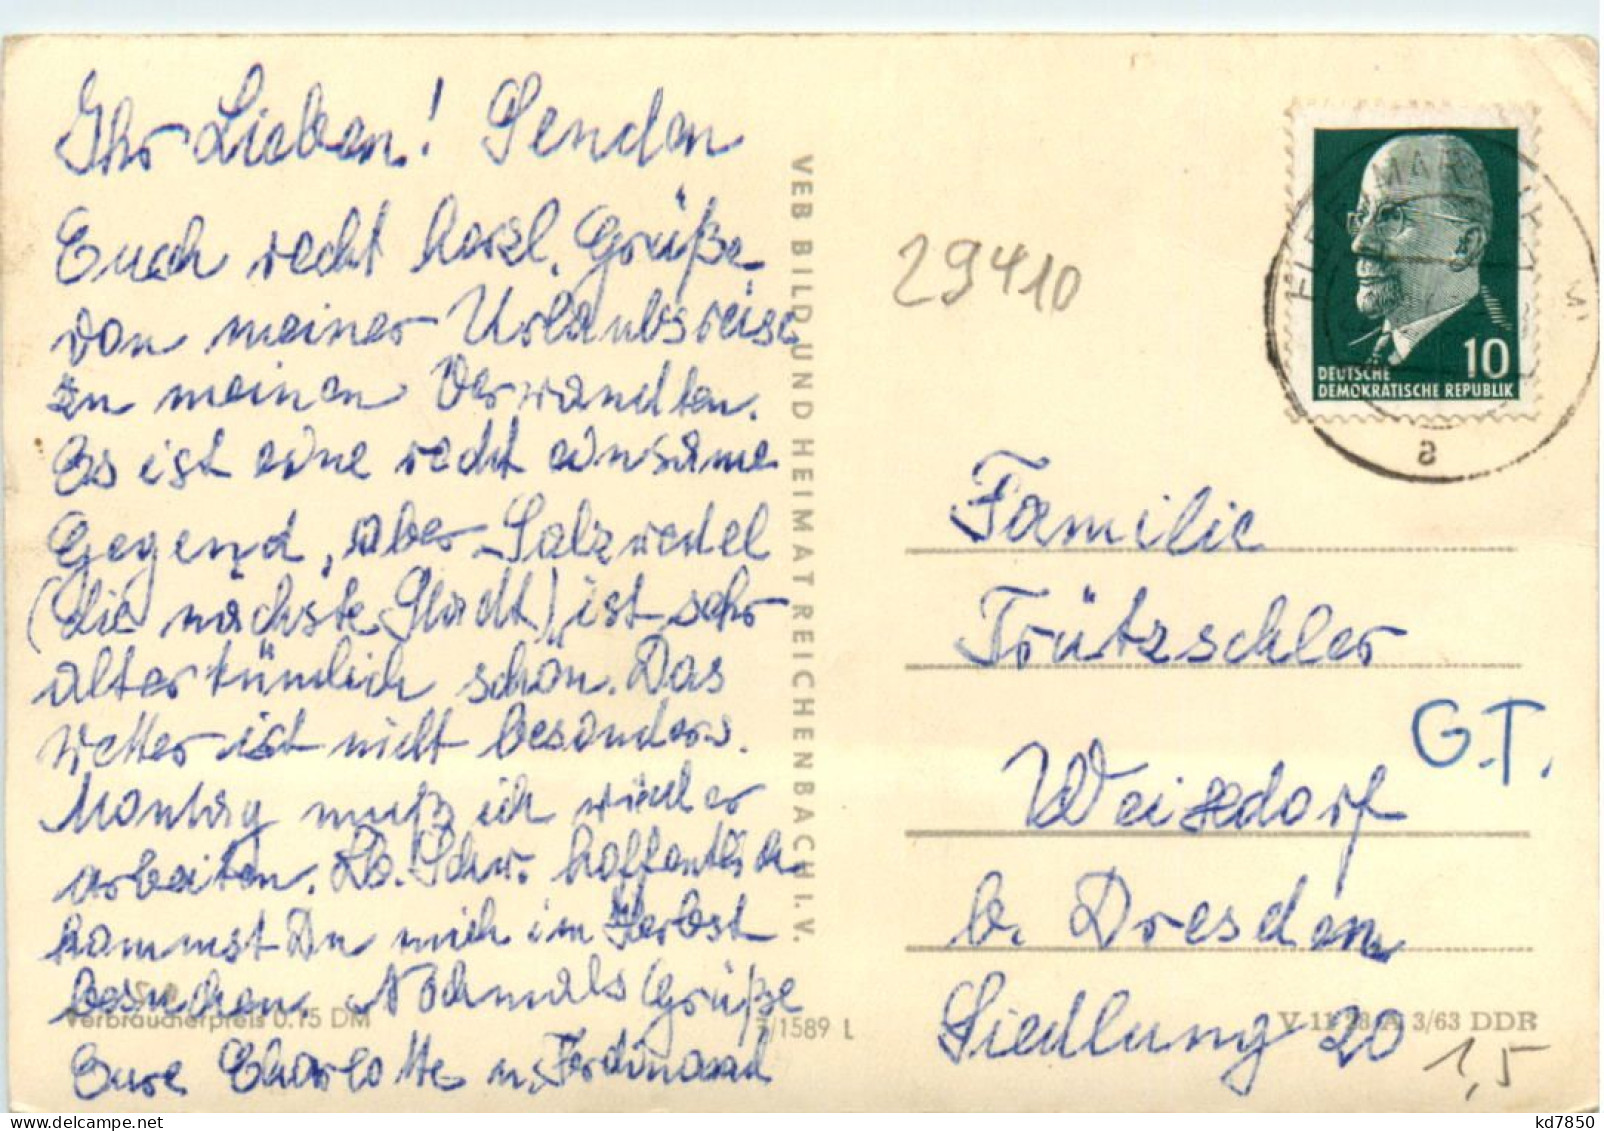 Ihr Lieben! Senden
Euch recht herzl. Grüße
von meiner Urlaubsreise
zu meinen Verwandten.
Es ist eine recht einsame
Gegend, aber Salzwedel
(die nächste Stadt), ist sehr
altertümlich schön. Das
Wetter ist nicht besonders.
Montag muß ich wieder
arbeiten. Lb. Schw. hoffentlich
kommst Du mich im Herbst
besuchen. Nochmals Grüße
Eure Charlotte u. Ferdinand
Verbraucherpreis 0.15 DM
1589 L
VEB BILD UND HEIMAT REICHENBACH I. V.
29410
10
DEUTSCHE
DEMOKRATISCHE REPUBLIK
a
Familie
Trützschler
G.T.
Weixdorf
b. Dresden
Siedlung 20
V 11 28 A 3/63 DDR
1,5
kd7850